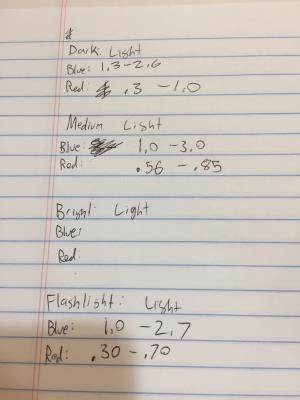 Dark: Light
Blue: 1.3-2.6
Red: .3 -1.0
Medium Light
Blue: 1.0 -3.0
Red: .56 -.85
Bright: Light
Blue:
Red:
Flashlight: Light
Blue: 1.0 -2.7
Red: .30 -.70